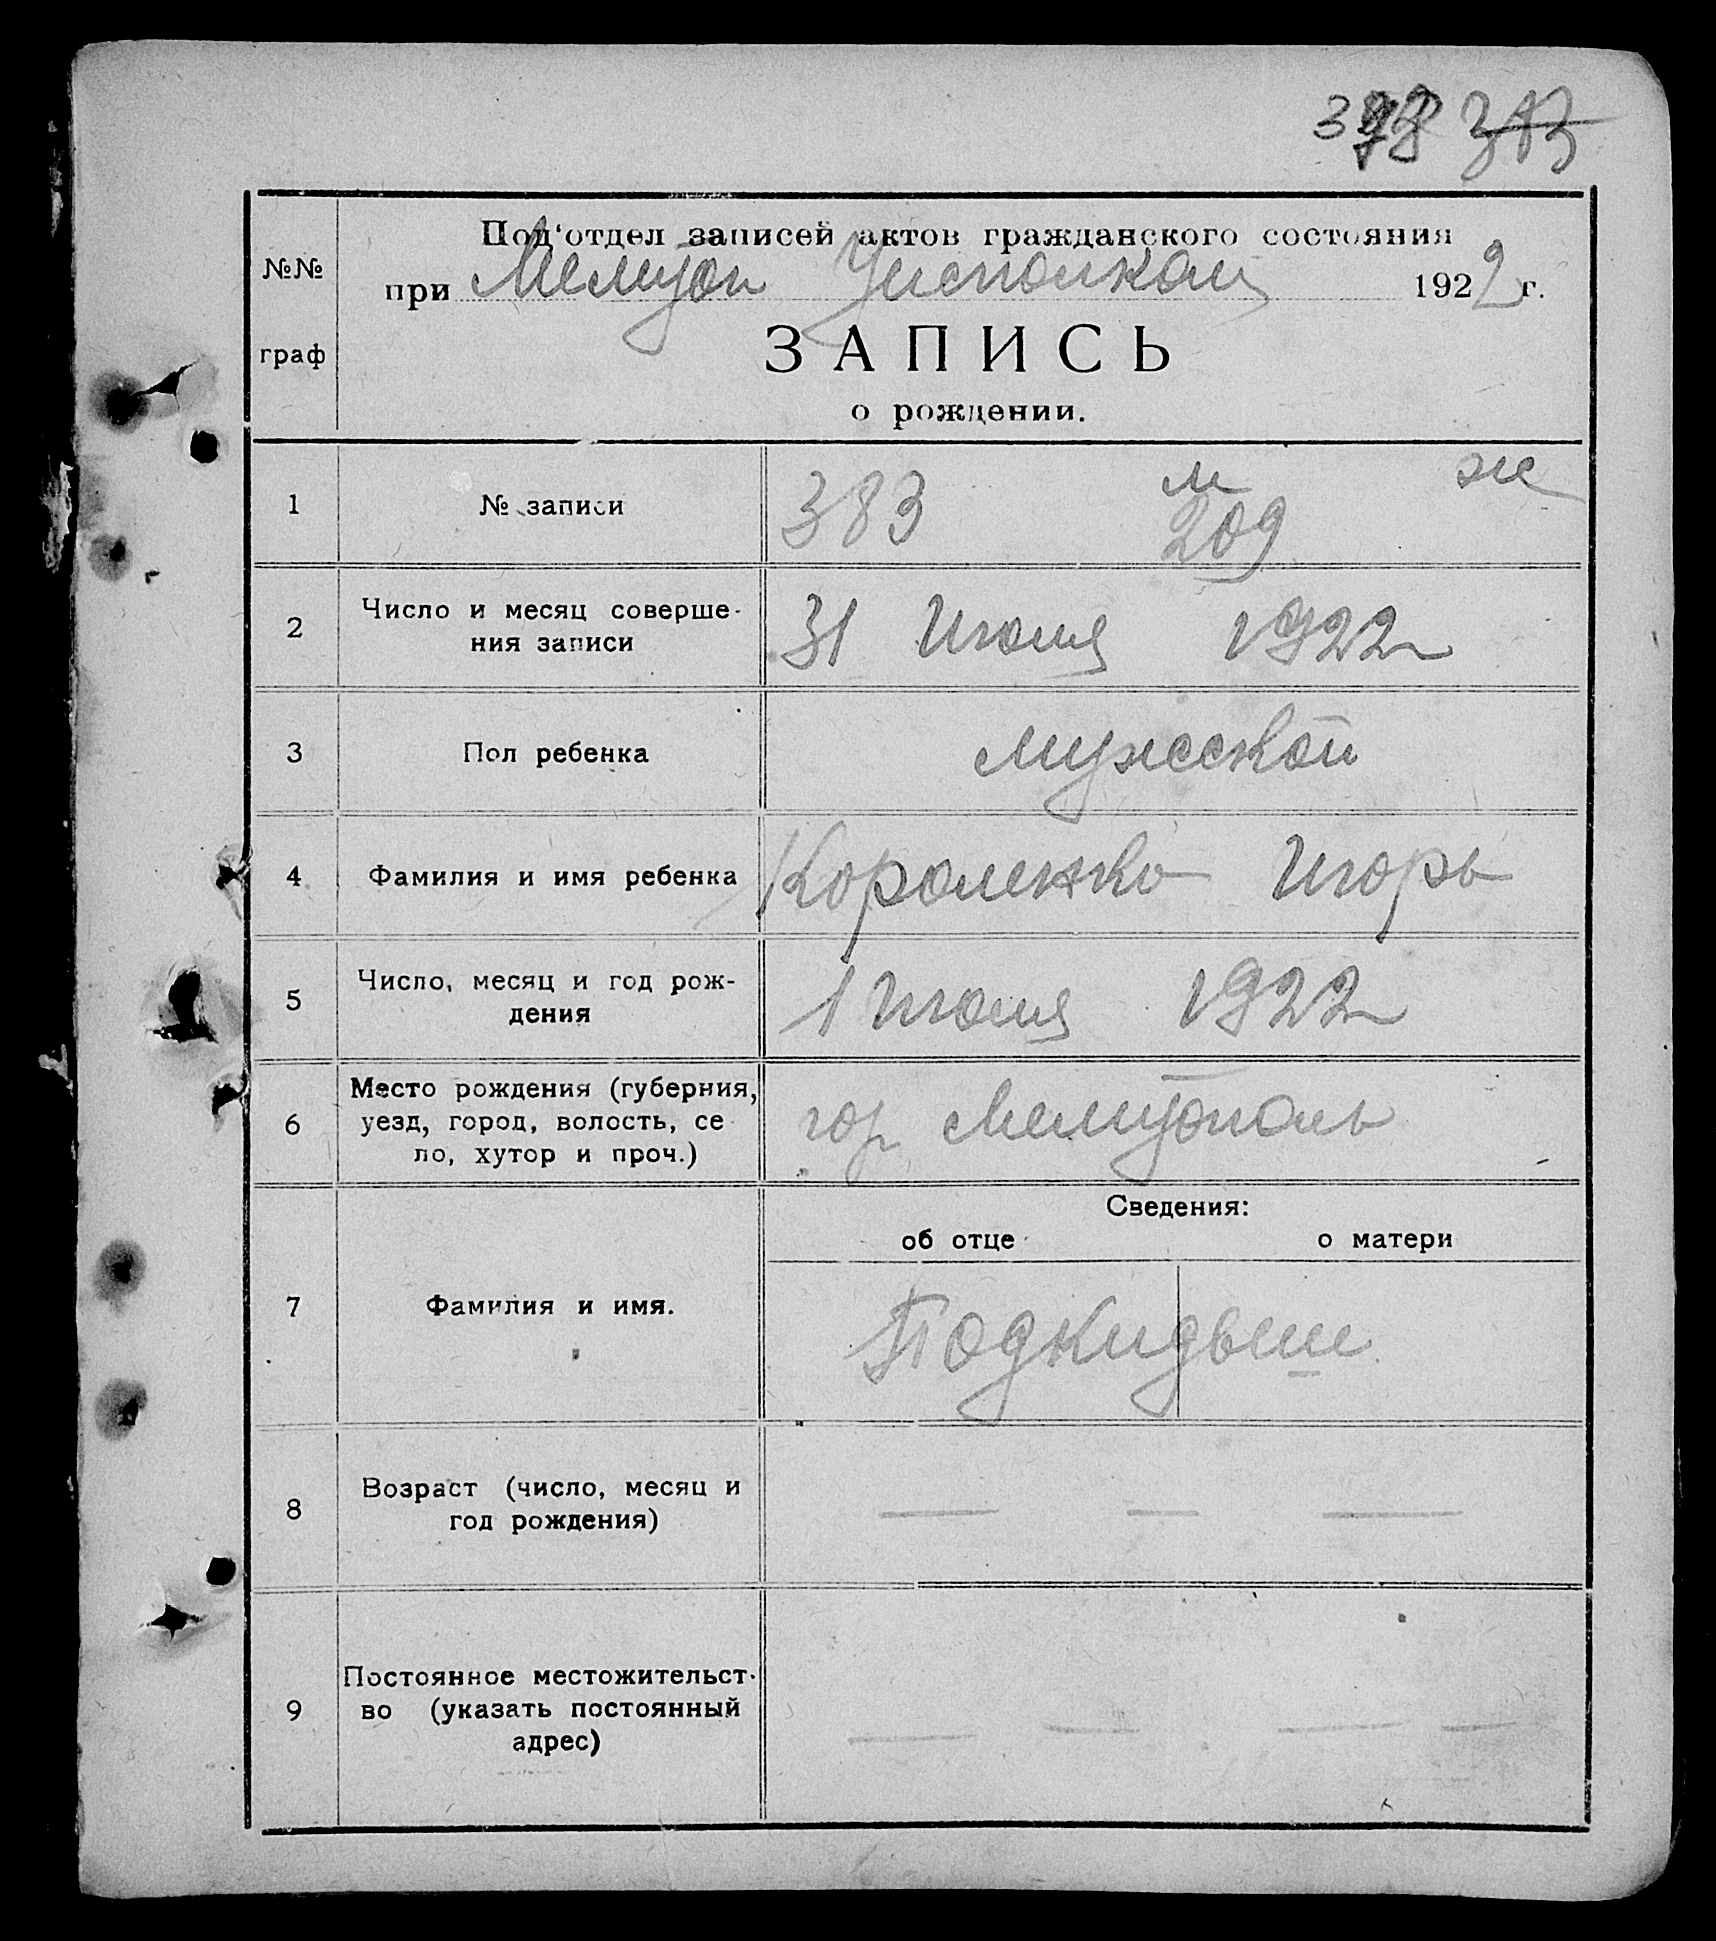 383
Под‘отдел записей актов гражданского состояния
при Мелитоп Уисполком 1922 г.
№№
граф
ЗАПИСЬ
о рождении.
1 № записи 383 м 209 ж
2 Число и месяц соверше-
ния записи 31 Июля 1922
3 Пол ребенка мужской
4 Фамилия и имя ребенка Короленко Игорь
5 Число, месяц и год рож-
дения 1 Июля 1922
6 Место рождения (губерния,
уезд, город, волость, се
ло, хутор и проч.) гор Мелитополь
Сведения:
об отце о матери
7 Фамилия и имя. Подкидыш
8 Возраст (число, месяц и
год рождения) — — —
9 Постоянное местожительст-
во (указать постоянный
адрес) — — — —